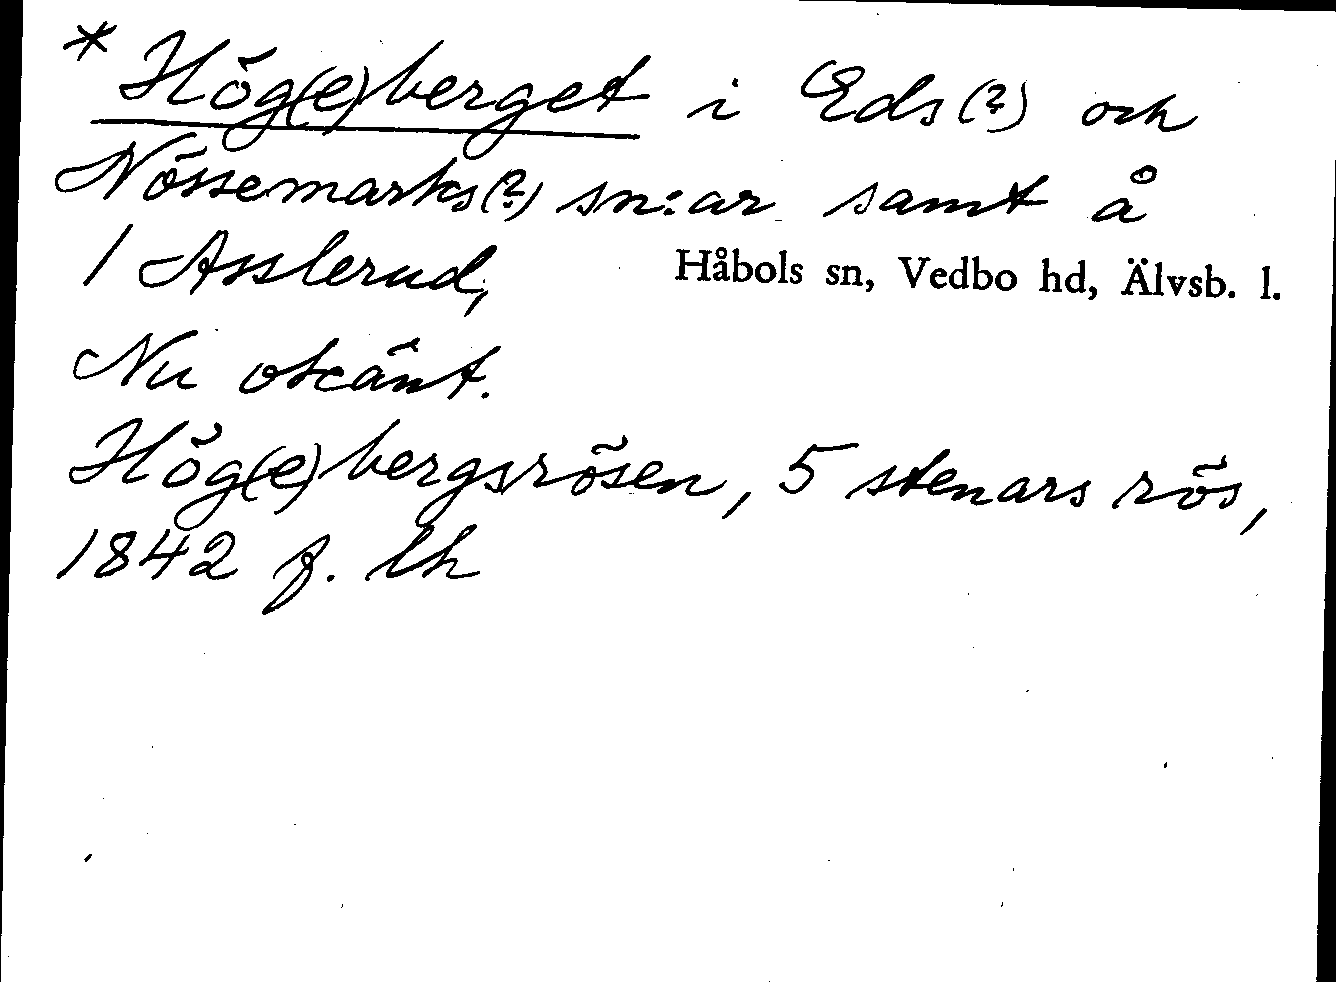 * Hög(e)berget i Eds(?) och
Nössemarks(?) sn:ar samt å
1 Asslerud, Håbols sn, Vedbo hd, Älvsb. l.
Nu okänt.
Hög(e)bergsrösen, 5 stenars rös,
1842 f. lh